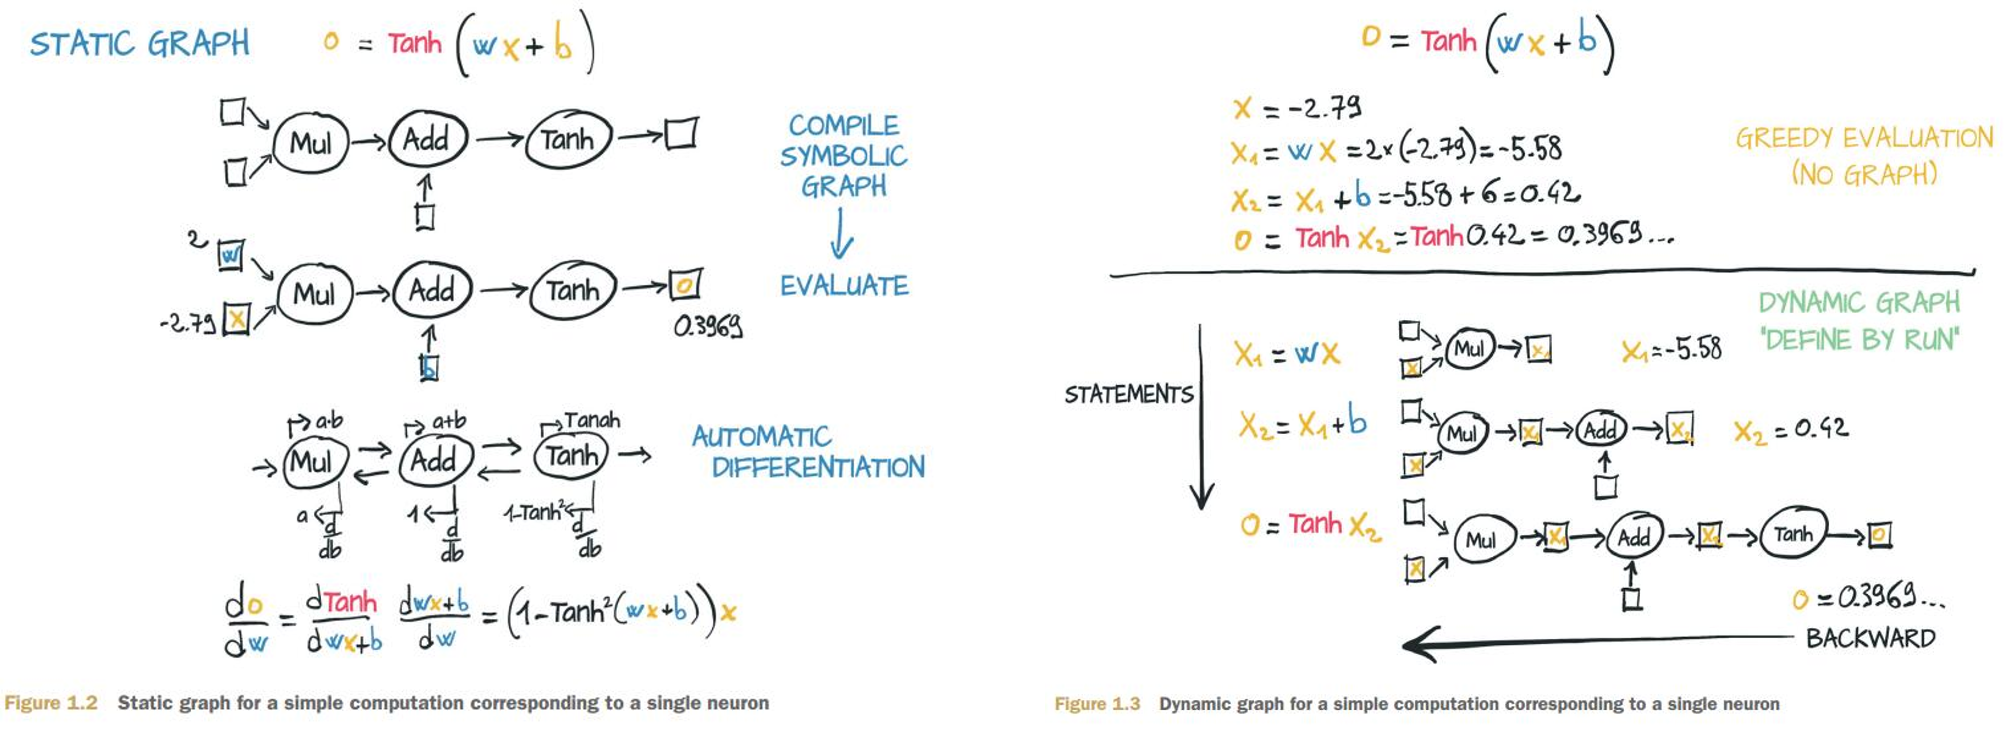 STATIC GRAPH
o = Tanh (wx + b)
Mul
Add
Tanh
COMPILE
SYMBOLIC
GRAPH
2
w
-2.79
x
Mul
Add
Tanh
o
0.3969
b
EVALUATE
a·b
a+b
Tanah
Mul
Add
Tanh
a
d
db
1
d
db
1-Tanh²
d
db
AUTOMATIC
DIFFERENTIATION
do/dw = dTanh/dwx+b dwx+b/dw = (1-Tanh²(wx+b))x
Figure 1.2 Static graph for a simple computation corresponding to a single neuron
O = Tanh (wx + b)
X = -2.79
X₁ = wX = 2×(-2.79) = -5.58
X₂ = X₁ + b = -5.58 + 6 = 0.42
O = Tanh X₂ = Tanh 0.42 = 0.3969...
GREEDY EVALUATION
(NO GRAPH)
DYNAMIC GRAPH
"DEFINE BY RUN"
STATEMENTS
X₁ = wX
x
Mul
X₁
X₁ = -5.58
X₂ = X₁ + b
x
Mul
X₁
Add
X₂
X₂ = 0.42
O = Tanh X₂
x
Mul
X₁
Add
X₂
Tanh
O
O = 0.3969...
BACKWARD
Figure 1.3 Dynamic graph for a simple computation corresponding to a single neuron